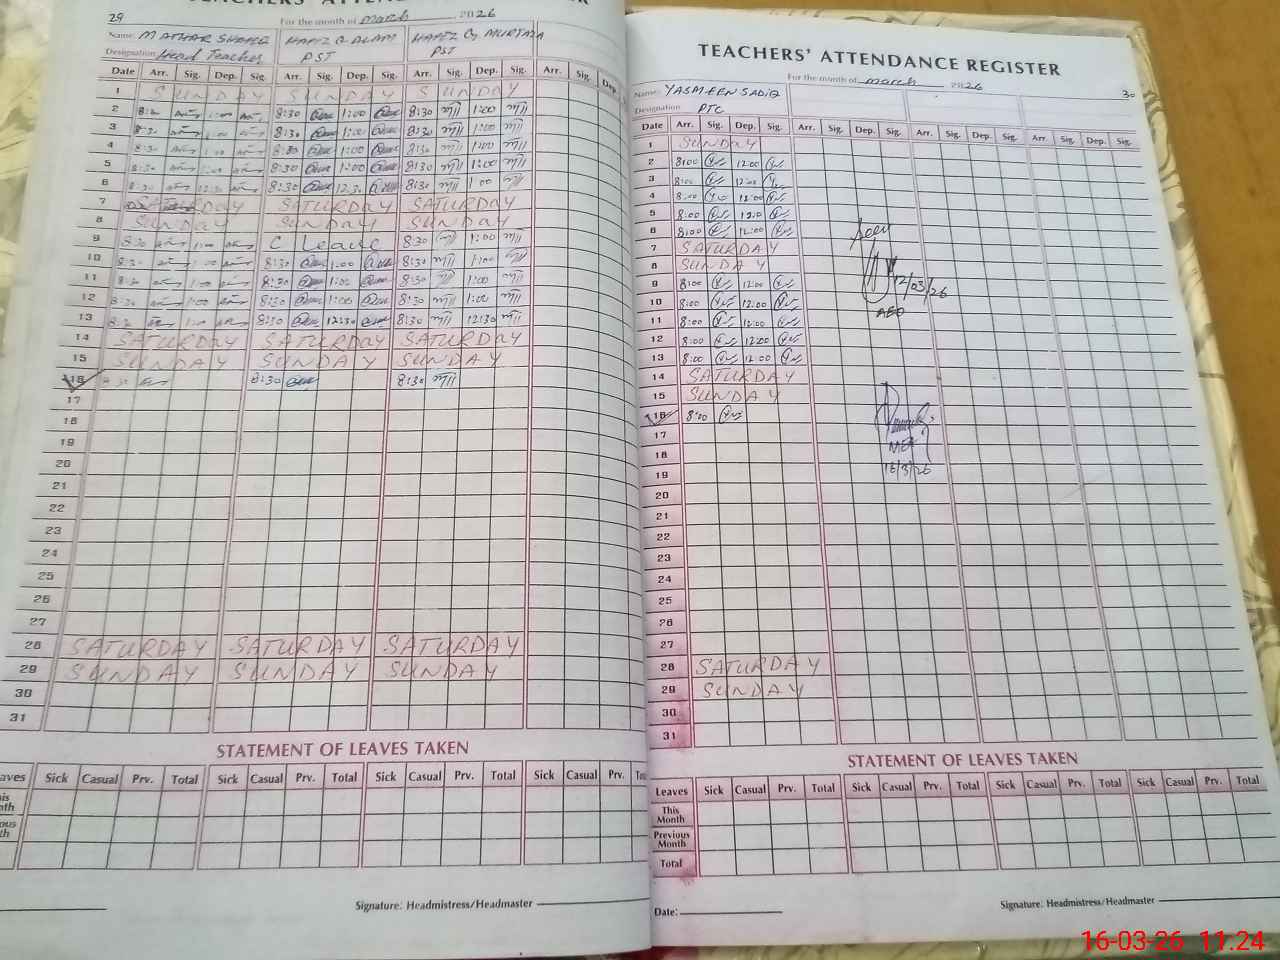 29
TEACHERS' ATTENDANCE REGISTER
For the month of march 2026
Name: MATHAR HAFIZ G ALAM HAFIZ G MURTAZA
Designation: Head Teacher PST PST
Date Arr. Sig. Dep. Sig. Arr. Sig. Dep. Sig. Arr. Sig. Dep. Sig. Arr. Sig. Dep. Sig.
1 SUNDAY SUNDAY SUNDAY
2 8:30 1:00 8:30 1:00 8:30 1:00
3 8:30 1:00 8:30 1:00 8:30 1:00
4 8:30 1:00 8:30 1:00 8:30 1:00
5 8:30 1:00 8:30 1:00 8:30 1:00
6 8:30 12:30 8:30 12:30 8:30 1:00
7 SATURDAY SATURDAY SATURDAY
8 SUNDAY SUNDAY SUNDAY
9 8:30 1:00 C Leave 8:30 1:00
10 8:30 1:00 8:30 1:00 8:30 1:00
11 8:30 1:00 8:30 1:00 8:30 1:00
12 8:30 1:00 8:30 1:00 8:30 1:00
13 8:30 1:00 8:30 12:30 8:30 12:30
14 SATURDAY SATURDAY SATURDAY
15 SUNDAY SUNDAY SUNDAY
16 8:30 8:30 8:30
17
18
19
20
21
22
23
24
25
26
27
28 SATURDAY SATURDAY SATURDAY
29 SUNDAY SUNDAY SUNDAY
30
31
STATEMENT OF LEAVES TAKEN
Leaves Sick Casual Prv. Total Sick Casual Prv. Total Sick Casual Prv. Total Sick Casual Prv. Total
This Month
Previous Month
Signature: Headmistress/Headmaster
TEACHERS' ATTENDANCE REGISTER
For the month of march 2026
30
Name: YASMEEN SADIQ
Designation: PTC
Date Arr. Sig. Dep. Sig. Arr. Sig. Dep. Sig. Arr. Sig. Dep. Sig. Arr. Sig. Dep. Sig.
1 SUNDAY
2 8:00 12:00
3 8:00 12:00
4 8:00 12:00
5 8:00 12:00
6 8:00 12:00
7 SATURDAY
8 SUNDAY
9 8:00 12:00
10 8:00 12:00
11 8:00 12:00
12 8:00 12:00
13 8:00 12:00
14 SATURDAY
15 SUNDAY
16 8:00
17
18
19
20
21
22
23
24
25
26
27
28 SATURDAY
29 SUNDAY
30
31
Seen
12/03/26
AEO
MEA
16/3/26
STATEMENT OF LEAVES TAKEN
Leaves Sick Casual Prv. Total Sick Casual Prv. Total Sick Casual Prv. Total Sick Casual Prv. Total
This Month
Previous Month
Total
Date:
Signature: Headmistress/Headmaster
16-03-26 11.24